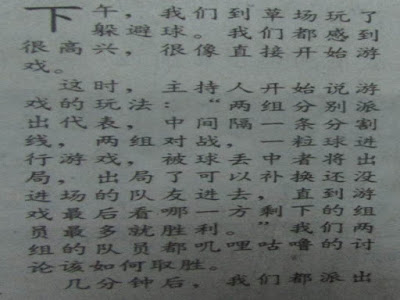 下午，我们到草场玩了
躲避球。我们都感到
很高兴，很像直接开始游
戏。
这时，主持人开始说游
戏的玩法：“两组分别派
出代表，中间隔一条分割
线，两组对战，一粒球进
行游戏，被球丢中者将出
局，出局了可以补换还没
进场的队友进去，直到游
戏最后看哪一方剩下的组
员最多就胜利。”我们两
组的队员都叽哩咕噜的讨
论该如何取胜。
几分钟后，我们都派出